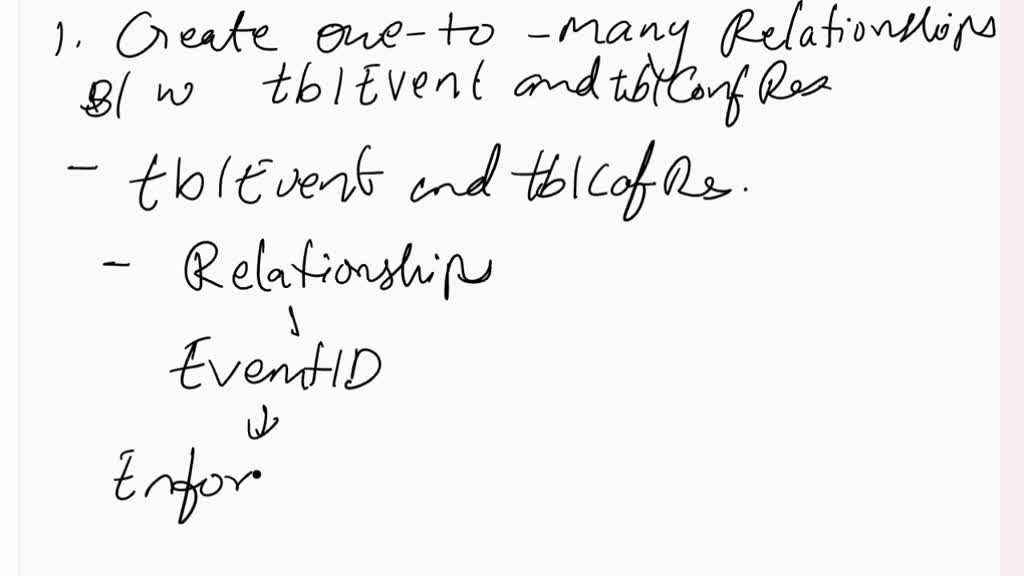 1. Create one-to-many Relationships
B/w tblEvent and tblConfRes
- tblEvent and tblCofRs.
- Relationship
↓
EventID
↓
Enfor